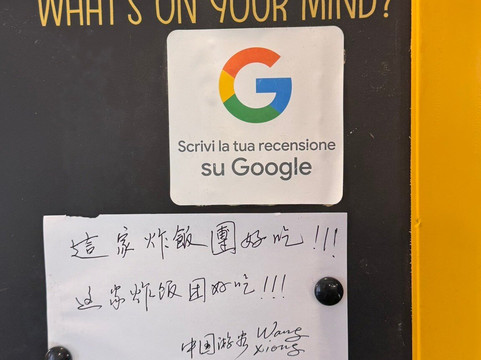 WHAT'S ON YOUR MIND?
G
Scrivi la tua recensione
su Google
這家炸飯團好吃!!!
这家炸饭团好吃!!!
中国游客 Wang
Xiong